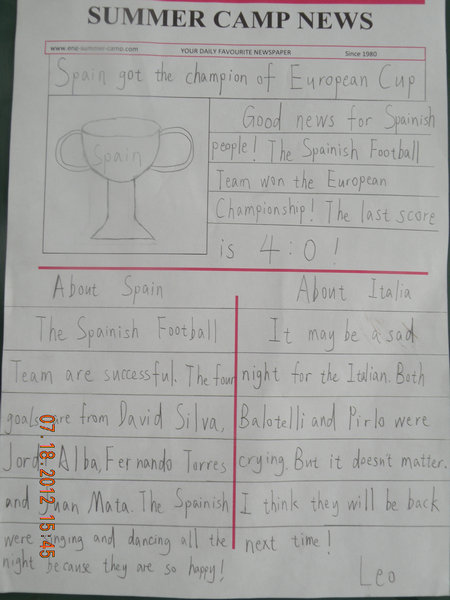 SUMMER CAMP NEWS
www.eng-summer-camp.com YOUR DAILY FAVOURITE NEWSPAPER Since 1980
Spain got the champion of European Cup
Spain
Good news for Spainish
people! The Spainish Football
Team won the European
Championship! The last score
is 4:0!
About Spain
The Spainish Football
Team are successful. The four
goals are from David Silva,
Jordi Alba, Fernando Torres
and Juan Mata. The Spainish
were singing and dancing all the
night because they are so happy!
About Italia
It may be a sad
night for the Italian. Both
Balotelli and Pirlo were
crying. But it doesn't matter.
I think they will be back
next time!
Leo
07.18.2012 15:45